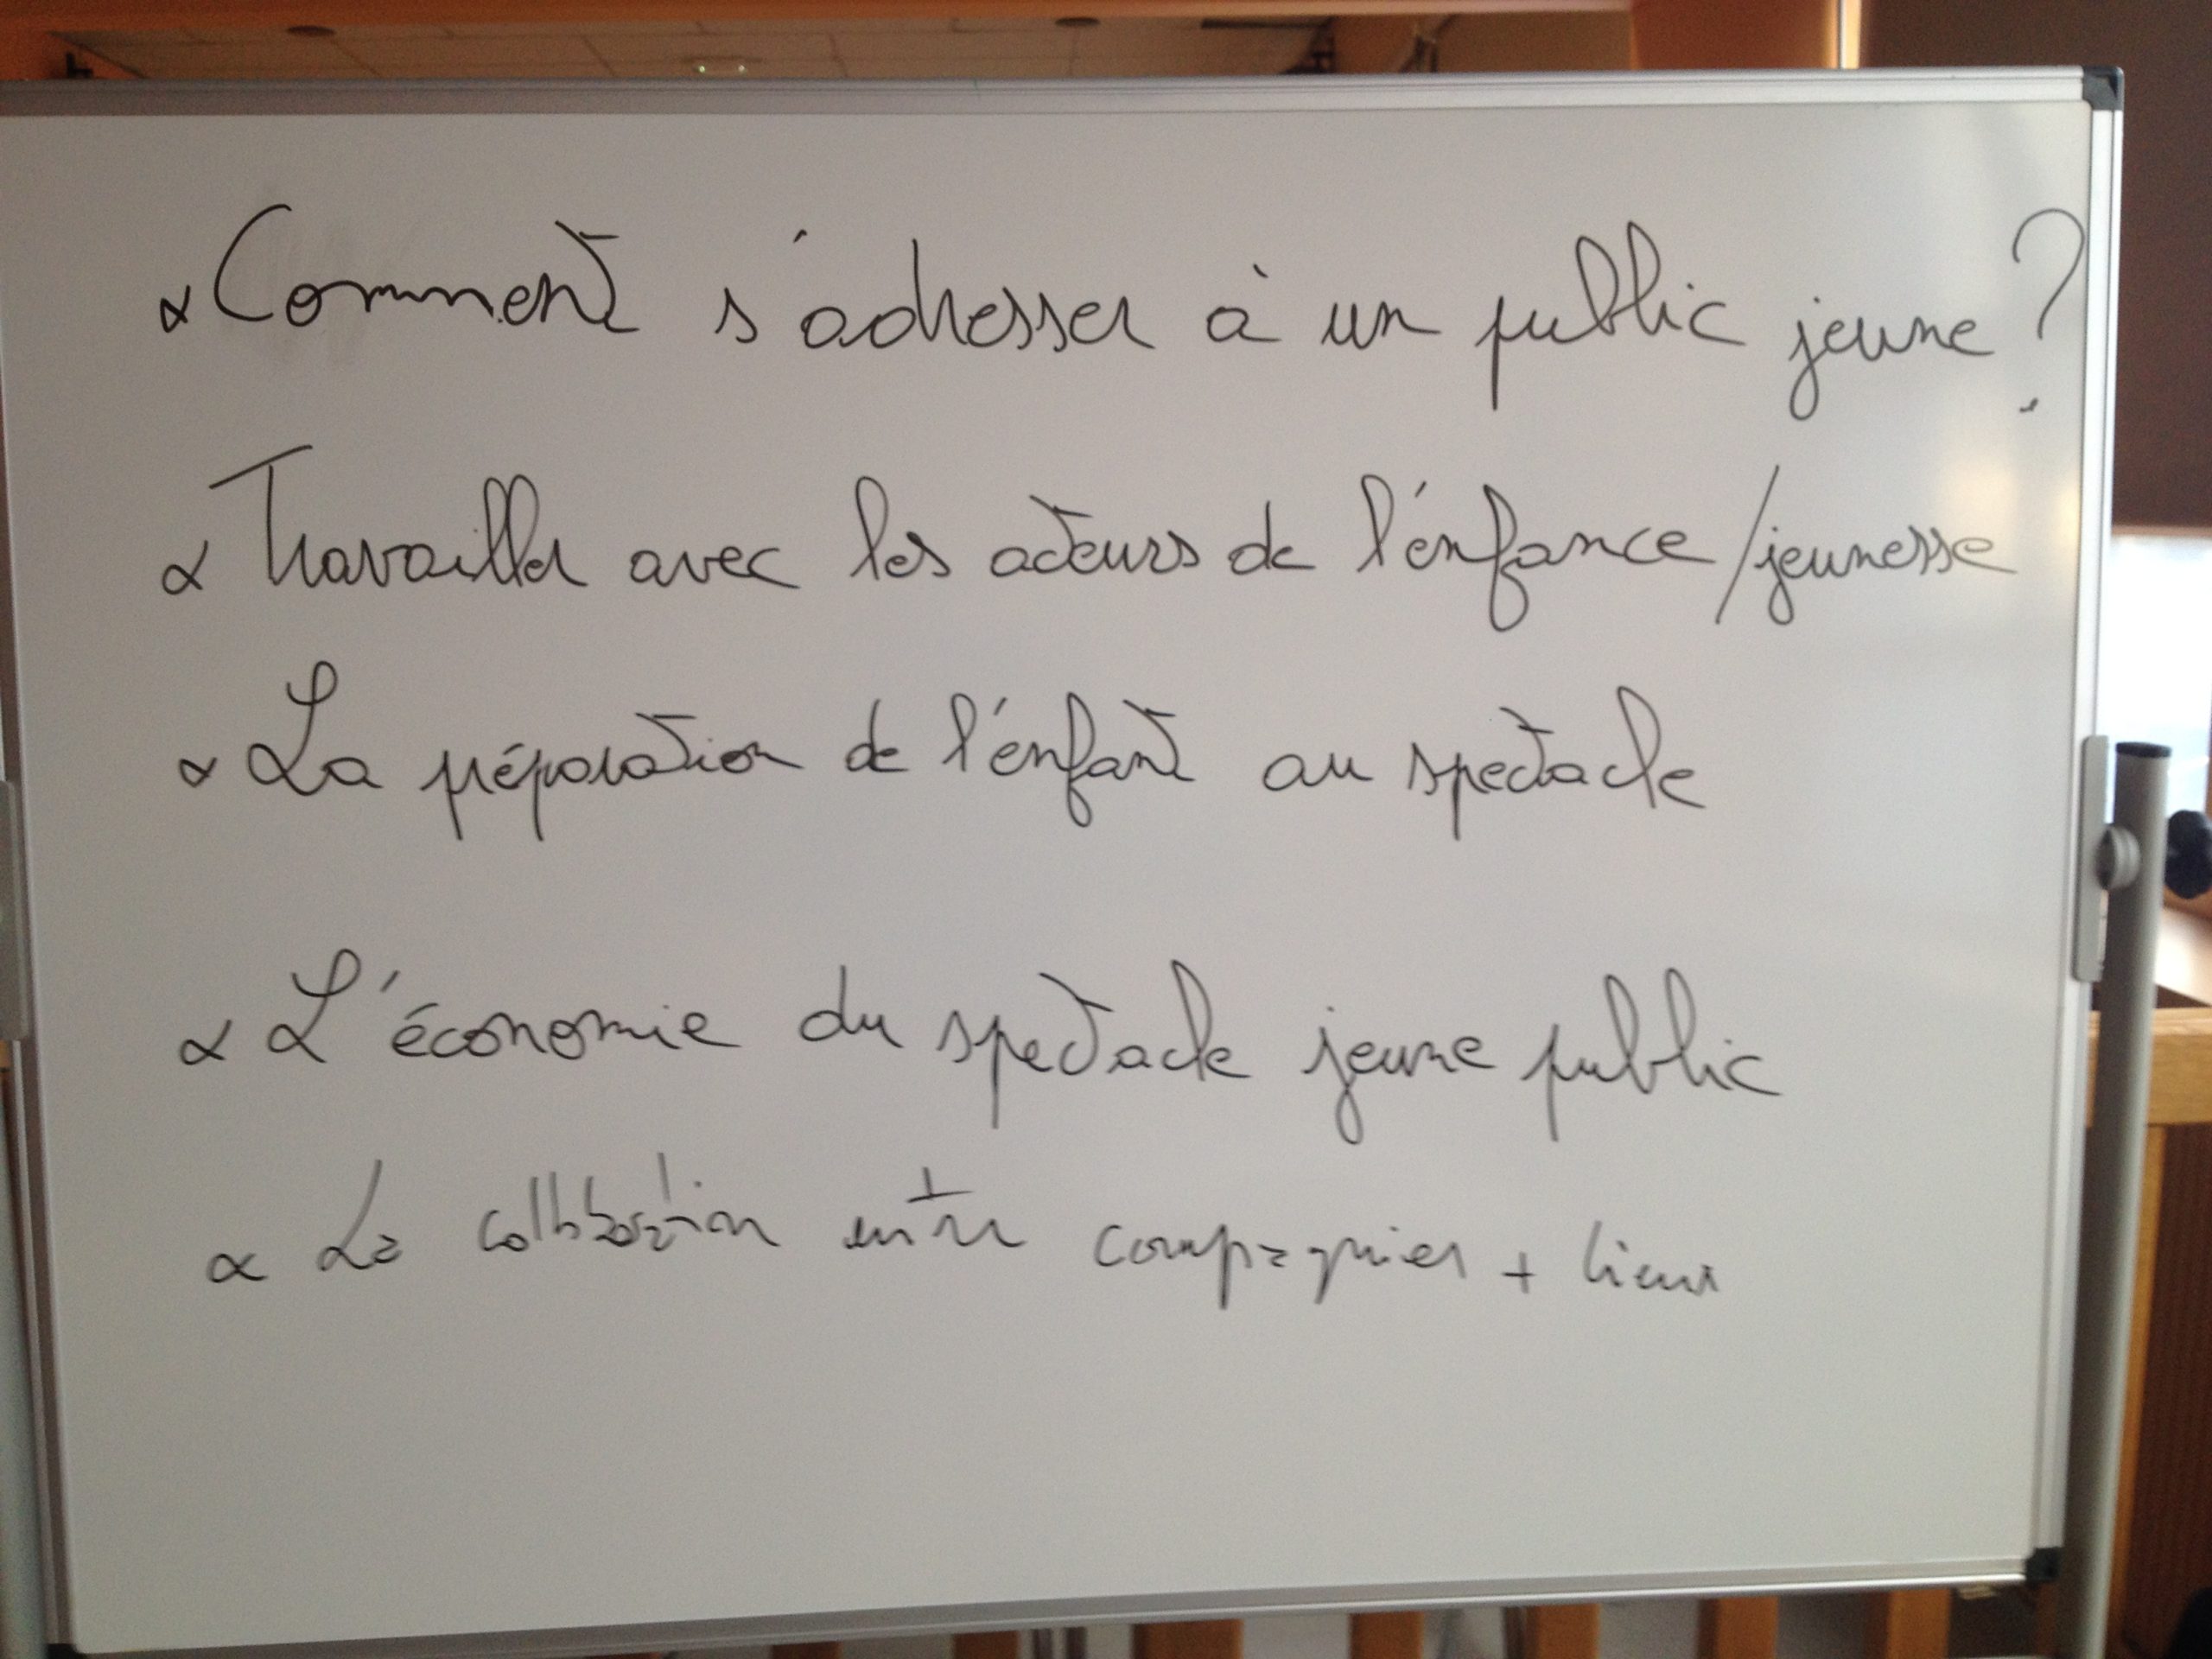 ∝ Comment s'adresser à un public jeune ?
∝ Travailler avec les acteurs de l'enfance / jeunesse
∝ La préparation de l'enfant au spectacle
∝ L'économie du spectacle jeune public
∝ La collaboration entre compagnies + lieux